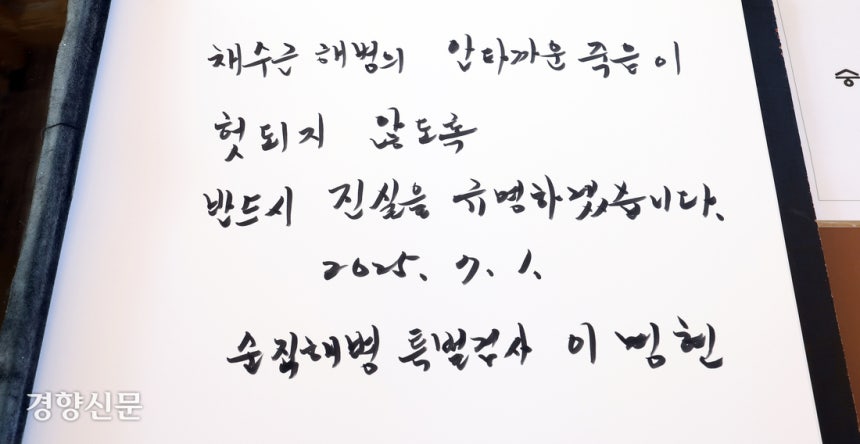 채수근 해병의 안타까운 죽음이
헛되지 않도록
반드시 진실을 규명하겠습니다.
2025. 7. 1.
순직해병 특별검사 이명현
승
경향신문